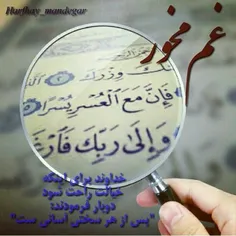 Harfhay_mandegar
غم مخور
وزرك
فَإِنَّ مَعَ ٱلْعُسْرِ يُسْرًا
وَإِلَىٰ رَبِّكَ فَٱرْغَ
خداوند برای اینکه
خیالت راحت شود
دوبار فرمودند:
"پس از هر سختی آسانی ست"